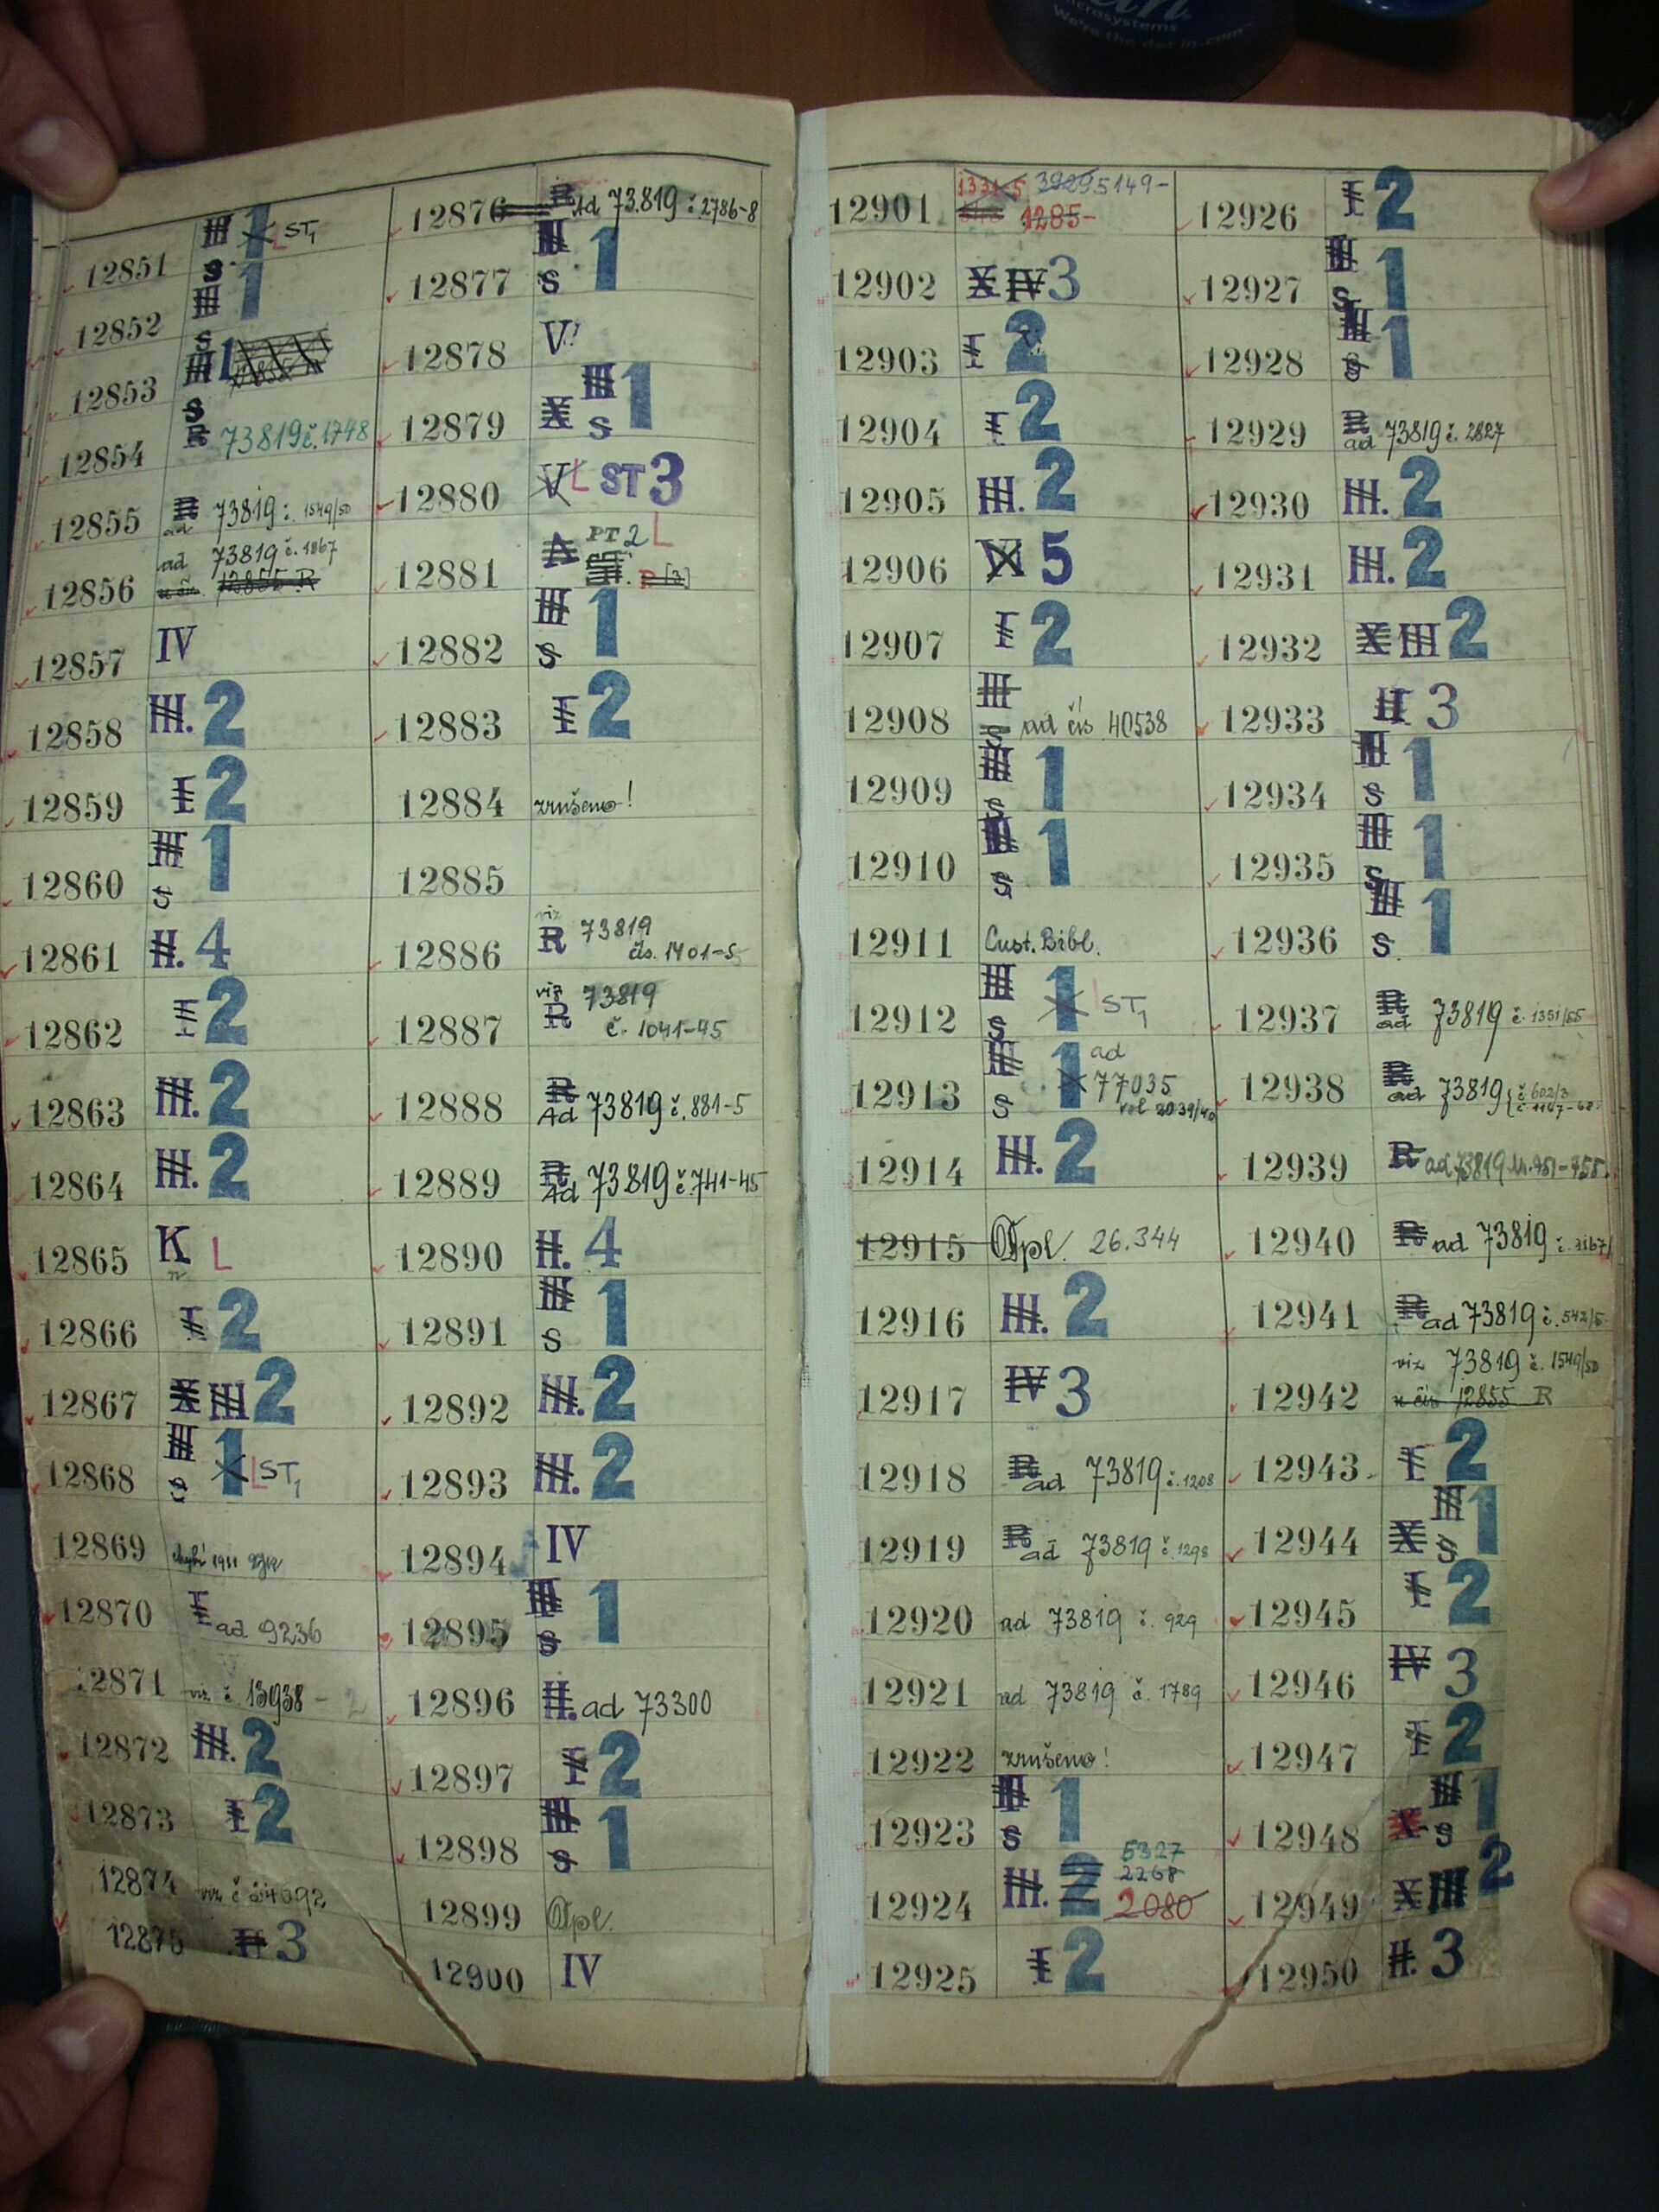 microsystems
We're the dot in .com
12851 III S 1 L ST1
12852 III S 1
12853 III S 1
12854 R 73819 č. 1748
12855 R ad 73819 č. 1549/50
12856 ad 73819 č. 1867
12855 R
12857 IV
12858 III. 2
12859 I 2
12860 III S 1
12861 II. 4
12862 I 2
12863 III. 2
12864 III. 2
12865 K L
12866 I 2
12867 X III 2
12868 III S 1 L ST1
12869 chybí 1911
12870 I ad 9236
12871 viz č. 13938
12872 III. 2
12873 I 2
12874 viz č
12875 II 3
12876 R Ad 73819 č 2786-8
12877 III S 1
12878 V
12879 X III S 1
12880 V L ST 3
12881 A PT 2 L
12882 III S 1
12883 I 2
12884 zrušeno!
12885
12886 viz R 73819
čís. 1401-5
12887 viz R 73819
č. 1041-45
12888 R Ad 73819 č. 881-5
12889 R Ad 73819 č 741-45
12890 II. 4
12891 III S 1
12892 III. 2
12893 III. 2
12894 IV
12895 III S 1
12896 II. ad 73300
12897 I 2
12898 III S 1
12899 Dpl.
12900 IV
12901 1331-5 3929 5149-
1285-
12902 X IV 3
12903 I 2
12904 I 2
12905 III. 2
12906 V 5
12907 I 2
12908 III S ad čís 40538
12909 III S 1
12910 III S 1
12911 Cust. Bibl.
12912 III S 1 L ST1
12913 III S 1 ad
77035
vol 2039/40
12914 III. 2
12915 Dpl. 26.344
12916 III. 2
12917 IV 3
12918 R ad 73819 č. 1208
12919 R ad 73819 č. 1298
12920 ad 73819 č. 929
12921 ad 73819 č. 1789
12922 zrušeno!
12923 III S 1
12924 III. 2 5327
2268
2080
12925 I 2
12926 I 2
12927 III S 1
12928 III S 1
12929 R ad 73819 č. 2827
12930 III. 2
12931 III. 2
12932 X III 2
12933 II 3
12934 III S 1
12935 III S 1
12936 III S. 1
12937 R ad 73819 č. 1351/55
12938 R ad 73819 č 602/3
12939 R ad 73819
12940 R ad 73819
12941 R ad 73819 č. 542/5
12942 viz 73819 č. 1549/50
k čís 12855 R
12943 I 2
12944 X III S 1
12945 I 2
12946 IV 3
12947 I 2
12948 X III S 1
12949 X III 2
12950 II. 3